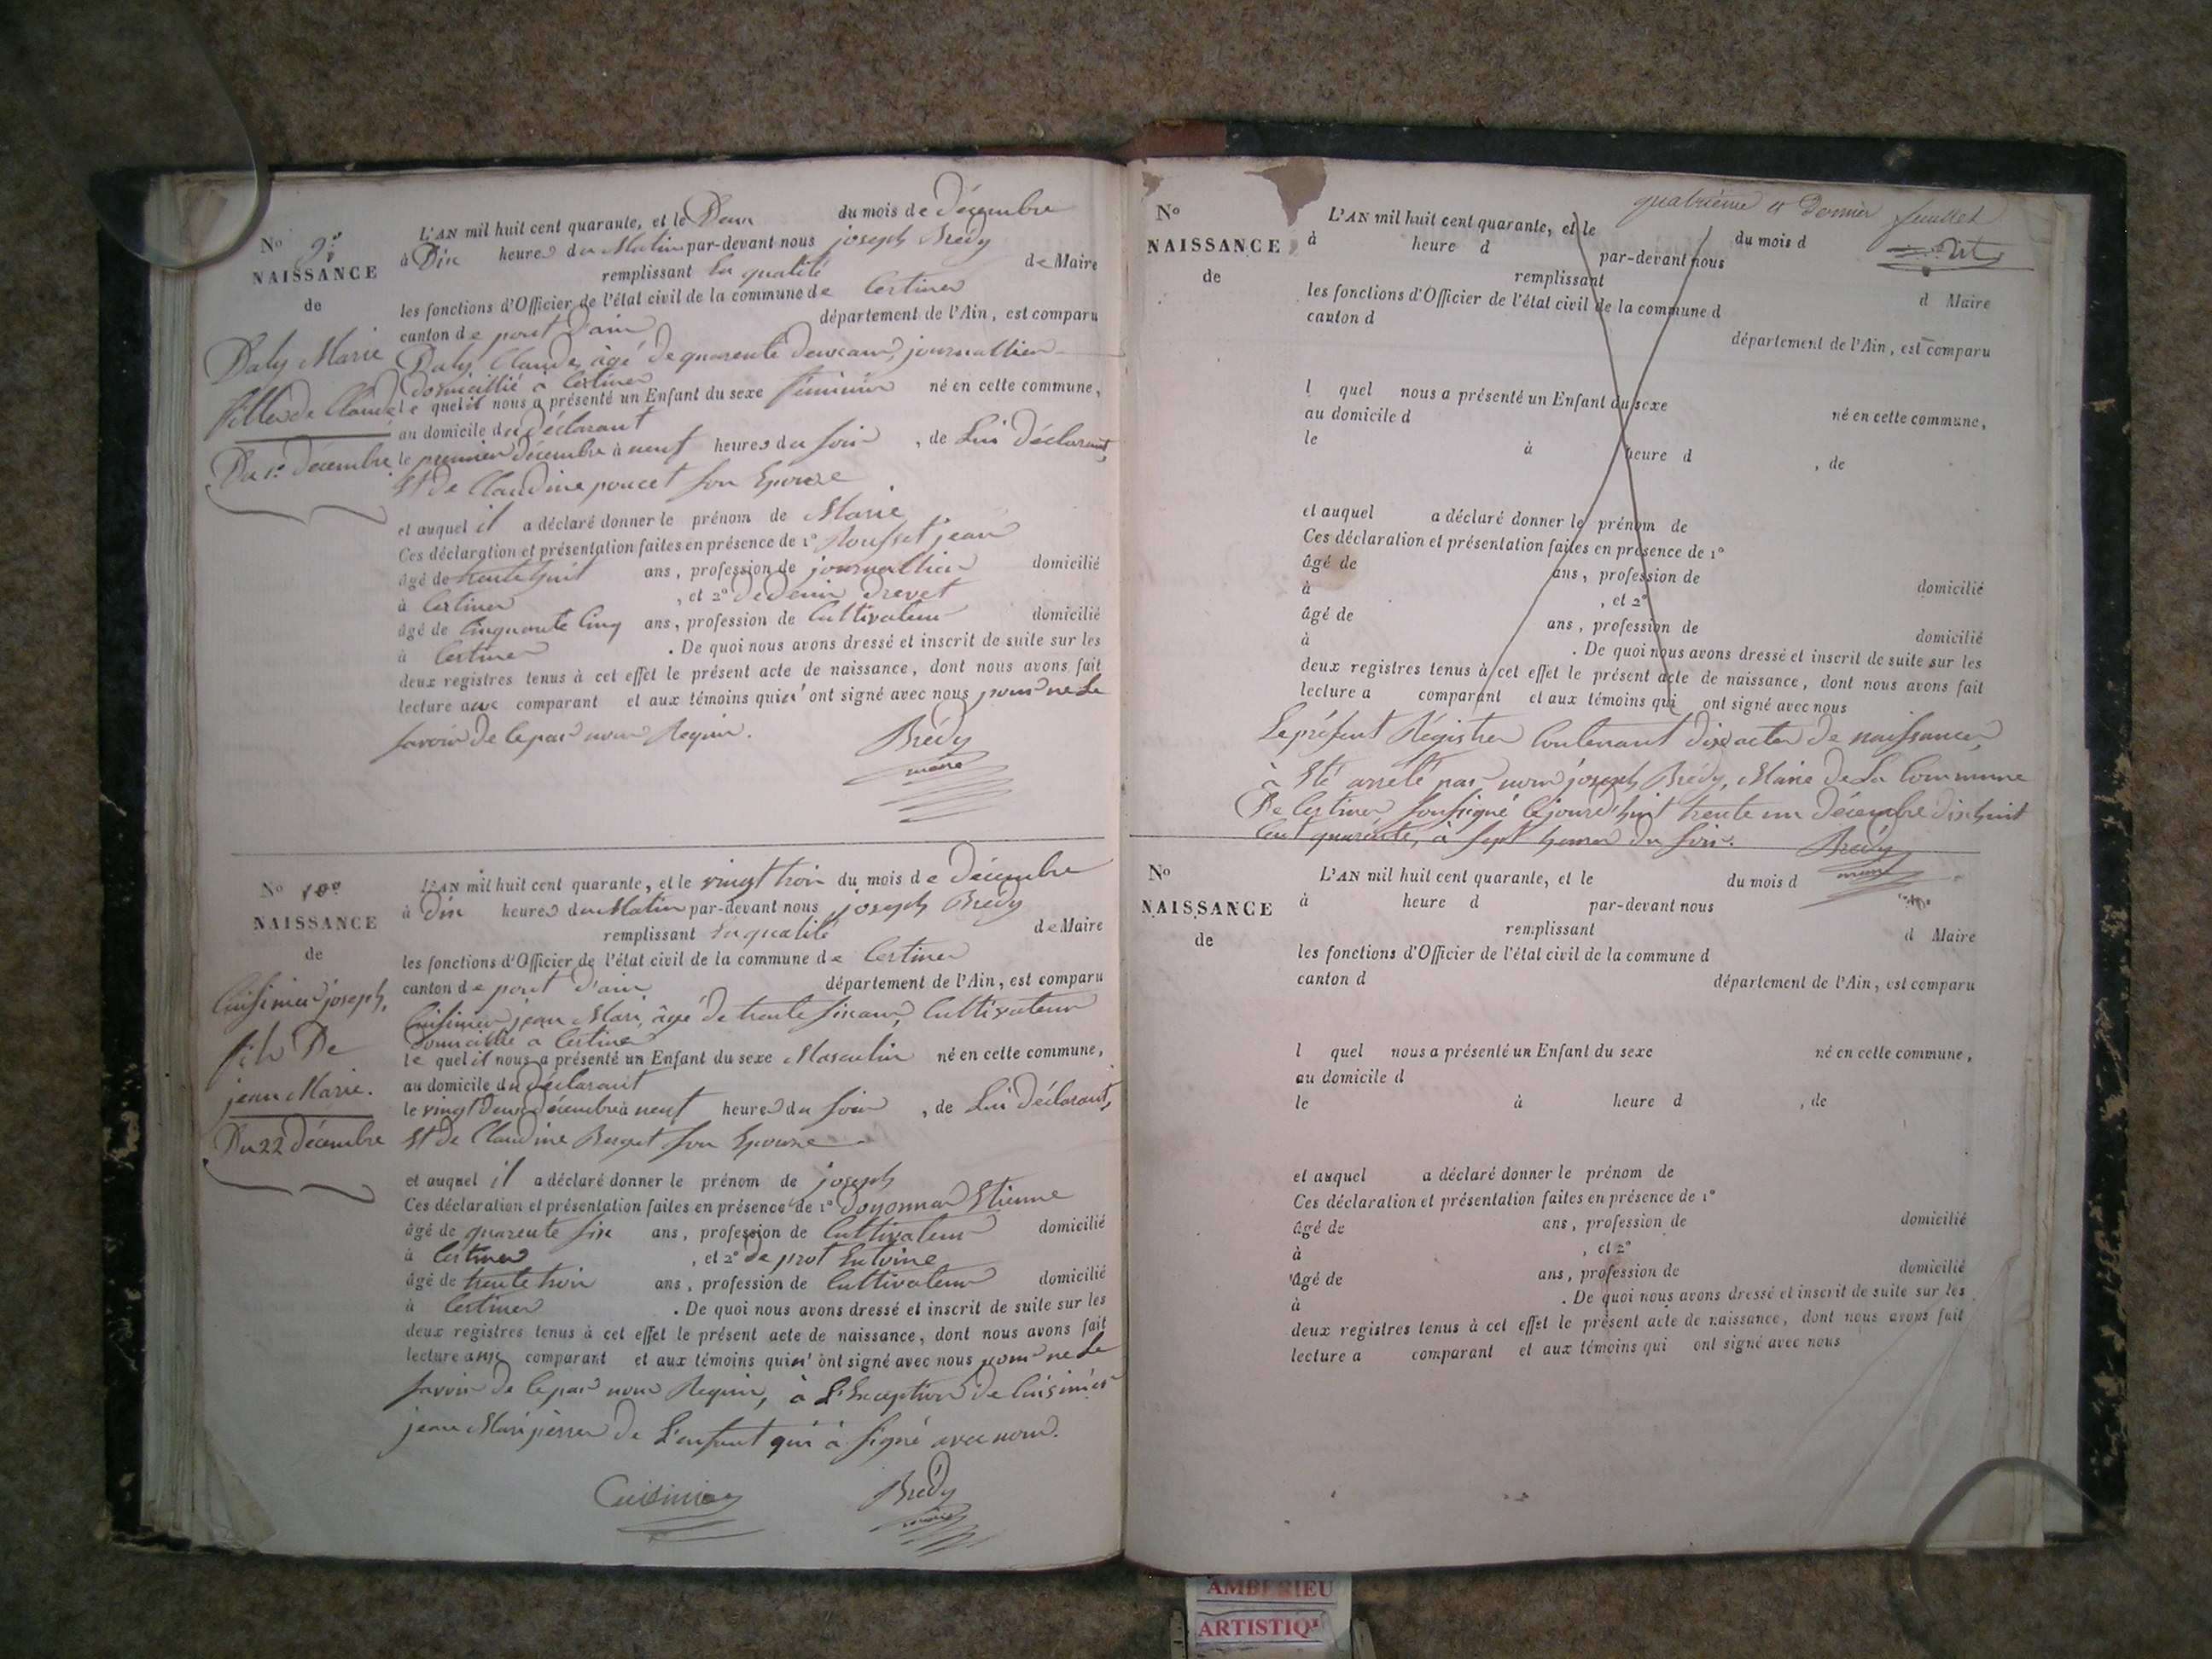 N° 9e
NAISSANCE
de
Daly Marie
fille de Claude
Du 1er décembre
L'AN mil huit cent quarante, et le Deux du mois de décembre
à Dix heures du Matin par-devant nous joseph Brédy
remplissant En qualité de Maire
les fonctions d'Officier de l'état civil de la commune de Certines
canton de pont d'ain département de l'Ain, est comparu
Daly Claude, âgé de quarente deux ans, journallier
domicillié à Certines
le quel il nous a présenté un Enfant du sexe féminin né en cette commune,
au domicile du déclarant
le premier décembre à neuf heures du soir, de Lui déclarant,
Et de Claudine poncet son Epouse
et auquel il a déclaré donner le prénom de Marie
Ces déclaration et présentation faites en présence de 1° Rousset jean
âgé de trente huit ans, profession de journallier domicilié
à Certines, et 2° drevet
âgé de Cinquante Cinq ans, profession de Cultivateur domicilié
à Certines. De quoi nous avons dressé et inscrit de suite sur les
deux registres tenus à cet effet le présent acte de naissance, dont nous avons fait
lecture aux comparant et aux témoins qui n'ont signé avec nous pour ne le
savoir de ce par nous Requis.
Brédy
maire
N° 10e
NAISSANCE
de
Cuisinier joseph,
fils De
jean Marie.
Du 22 décembre
L'AN mil huit cent quarante, et le vingt trois du mois de décembre
à dix heures du Matin par-devant nous joseph Brédy
remplissant En qualité de Maire
les fonctions d'Officier de l'état civil de la commune de Certines
canton de pont d'ain département de l'Ain, est comparu
Cuisinier jean Mari, âgé de trente six ans, Cultivateur
domicillié à Certines
le quel il nous a présenté un Enfant du sexe Masculin né en cette commune,
au domicile du déclarant
le vingt deux décembre à neuf heures du soir, de Lui déclarant,
Et de Claudine son Epouse
et auquel il a déclaré donner le prénom de joseph
Ces déclaration et présentation faites en présence de 1° Doyonnas Etienne
âgé de quarente six ans, profession de Cultivateur domicilié
à Certines, et 2° De prot Entoine
âgé de trente trois ans, profession de Cultivateur domicilié
à Certines. De quoi nous avons dressé et inscrit de suite sur les
deux registres tenus à cet effet le présent acte de naissance, dont nous avons fait
lecture aux comparant et aux témoins qui n'ont signé avec nous pour ne le
savoir de ce par nous Requis, à L'Exception de Cuisinier
jean Mari père de L'enfant qui à signé avec nous.
Cuisinier
Brédy
maire
quatrième et Dernier feuillet
N°
NAISSANCE
de
L'AN mil huit cent quarante, et le du mois d
à heure d par-devant nous
remplissant d Maire
les fonctions d'Officier de l'état civil de la commune d
canton d département de l'Ain, est comparu
l quel nous a présenté un Enfant du sexe né en cette commune,
au domicile d
le à heure d , de
et auquel a déclaré donner le prénom de
Ces déclaration et présentation faites en présence de 1°
âgé de ans, profession de domicilié
à , et 2°
âgé de ans, profession de domicilié
à . De quoi nous avons dressé et inscrit de suite sur les
deux registres tenus à cet effet le présent acte de naissance, dont nous avons fait
lecture a comparant et aux témoins qui ont signé avec nous
Le présent Régistre Contenant dix actes de naissances,
à Eté arrêté par nous joseph Brédy, Maire de La Commune
De Certines, soussigné cejourd'huit trente un décembre dix huit
Cent quarante, à sept heures du soir. Brédy
maire
N°
NAISSANCE
de
L'AN mil huit cent quarante, et le du mois d
à heure d par-devant nous
remplissant d Maire
les fonctions d'Officier de l'état civil de la commune d
canton d département de l'Ain, est comparu
l quel nous a présenté un Enfant du sexe né en cette commune,
au domicile d
le à heure d , de
et auquel a déclaré donner le prénom de
Ces déclaration et présentation faites en présence de 1°
âgé de ans, profession de domicilié
à , et 2°
âgé de ans, profession de domicilié
à . De quoi nous avons dressé et inscrit de suite sur les
deux registres tenus à cet effet le présent acte de naissance, dont nous avons fait
lecture a comparant et aux témoins qui ont signé avec nous
AMBERIEU
ARTISTIQU